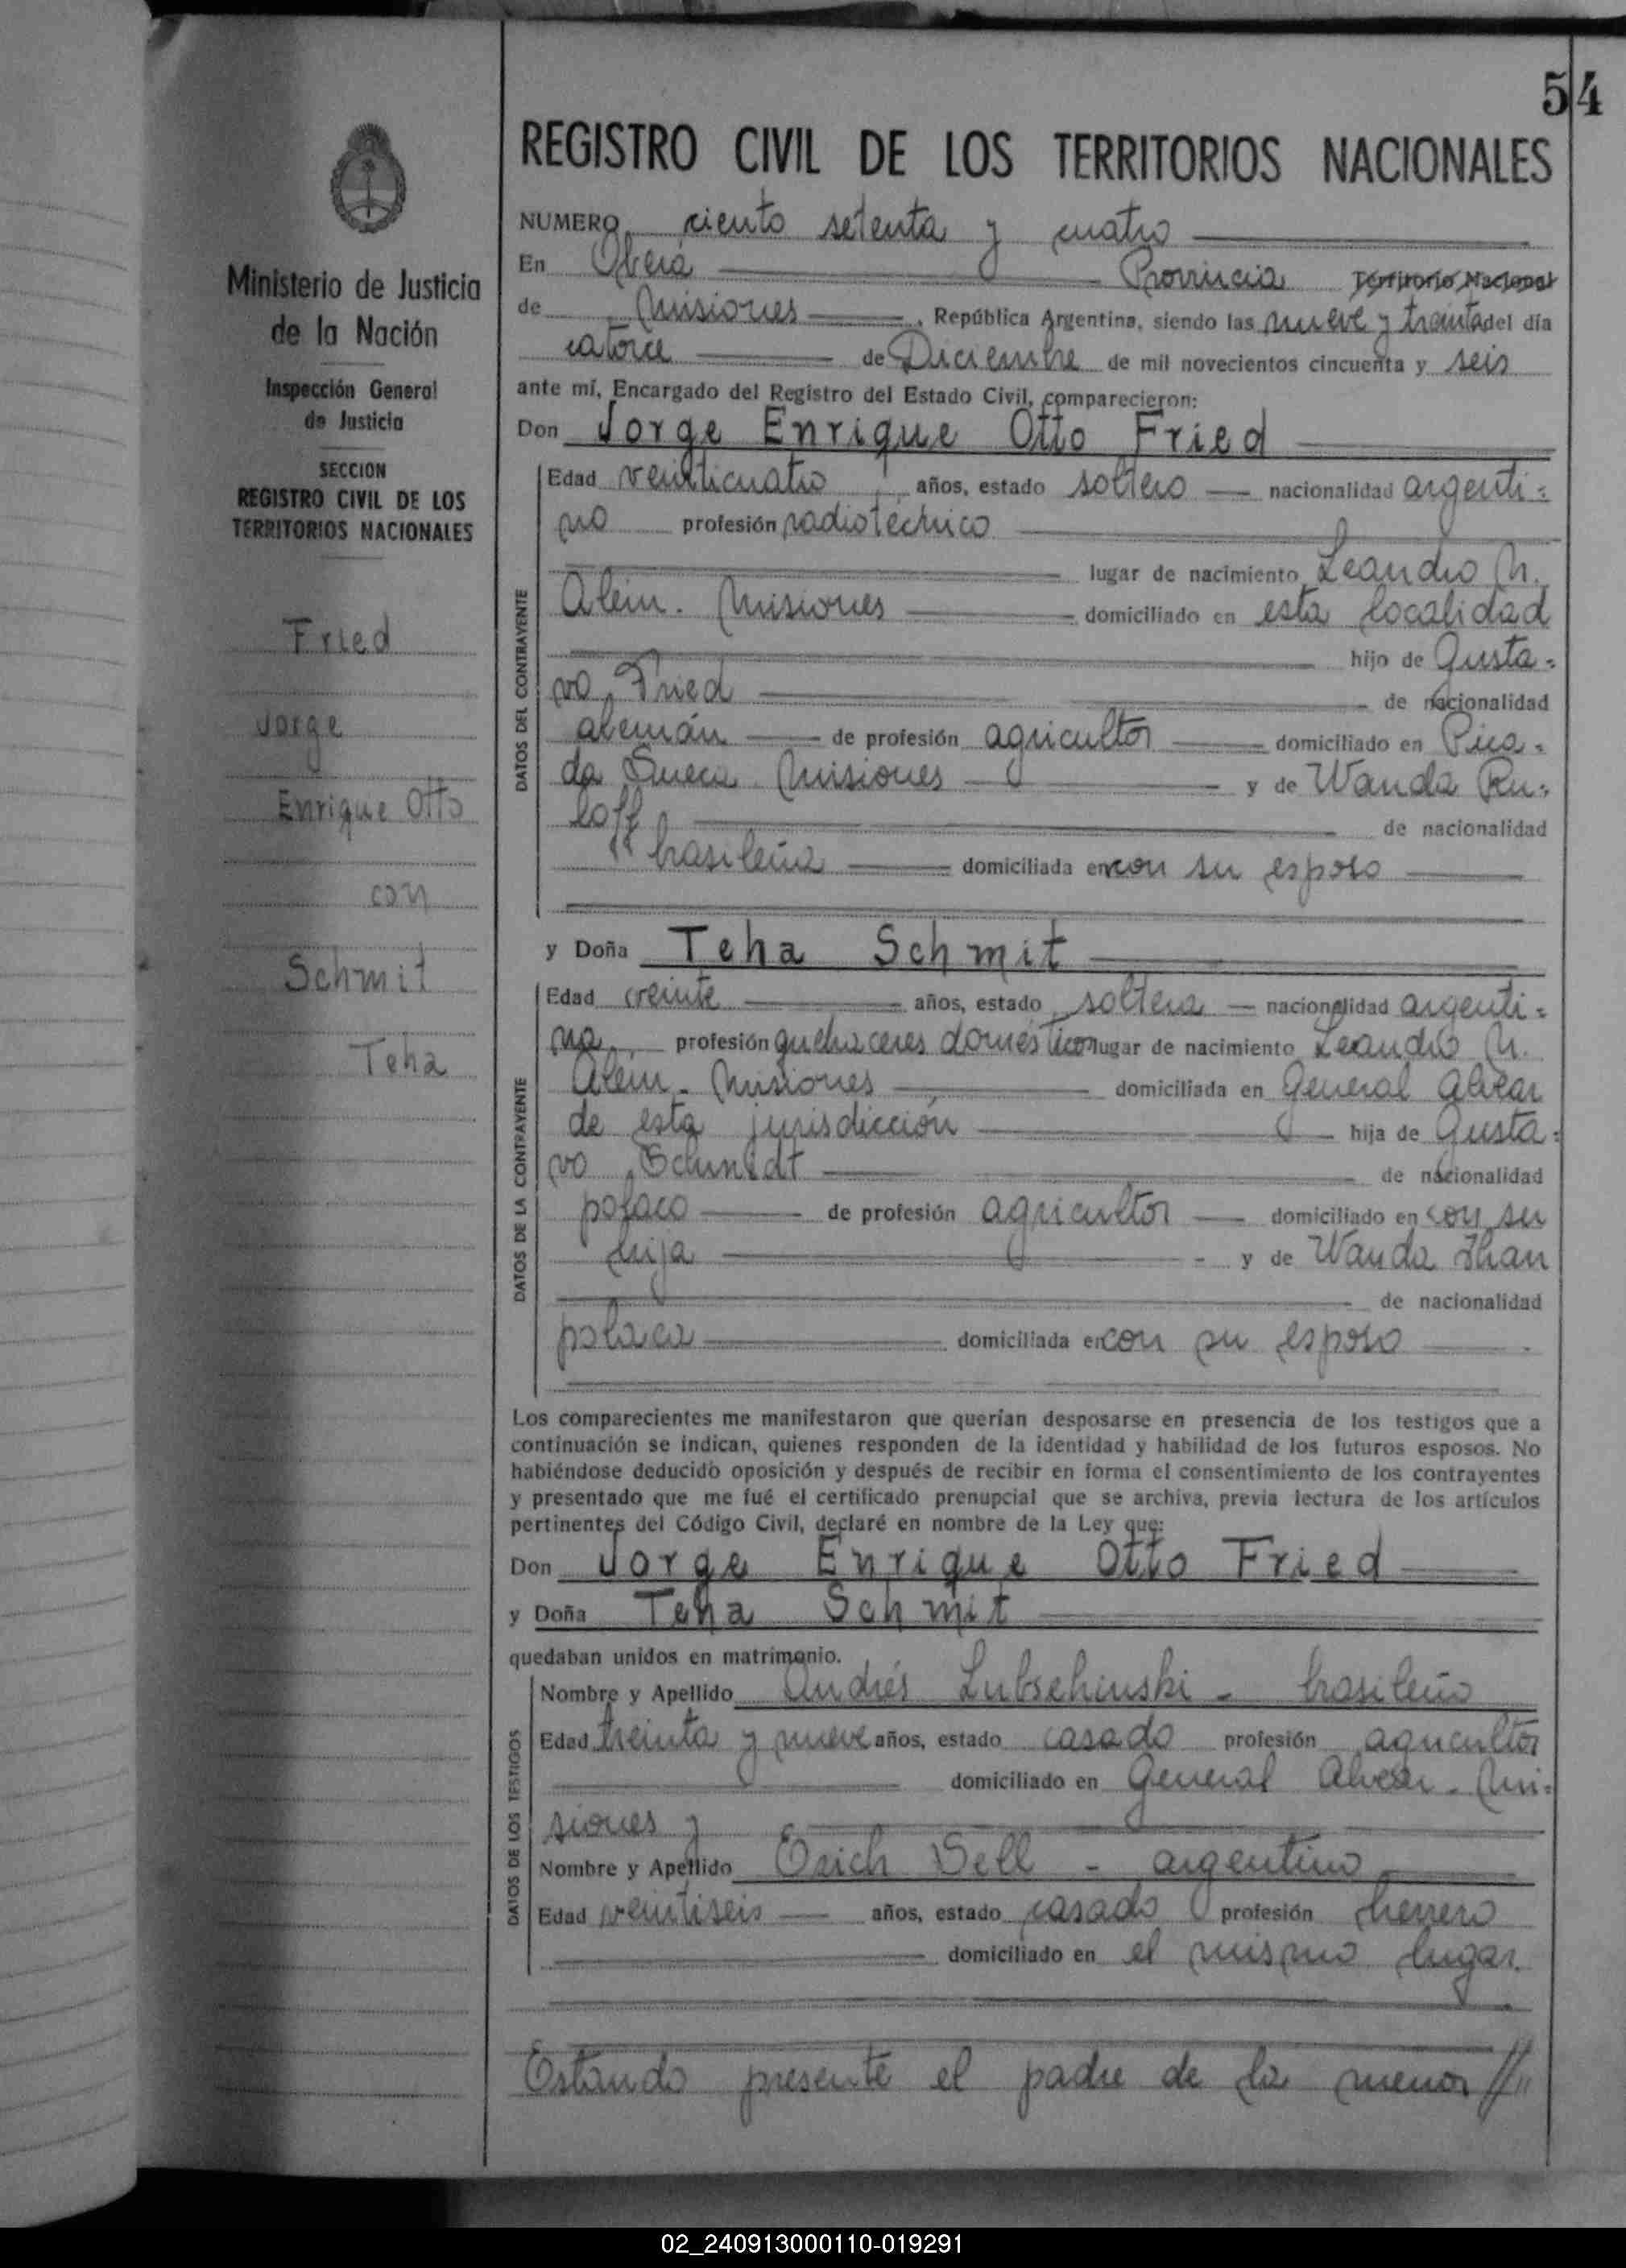 54
REGISTRO CIVIL DE LOS TERRITORIOS NACIONALES
Ministerio de Justicia
de la Nación
Inspección General
de Justicia
SECCION
REGISTRO CIVIL DE LOS
TERRITORIOS NACIONALES
Fried
Jorge
Enrique Otto
con
Schmit
Teha
NUMERO ciento setenta y cuatro
En Oberá Provincia Territorio Nacional
de Misiones, República Argentina, siendo las nueve y treinta del día
catorce de Diciembre de mil novecientos cincuenta y seis
ante mí, Encargado del Registro del Estado Civil, comparecieron:
Don Jorge Enrique Otto Fried
DATOS DEL CONTRAYENTE
Edad veinticuatro años, estado soltero nacionalidad argenti=
no profesión radiotécnico
lugar de nacimiento Leandro N.
Alem. Misiones domiciliado en esta localidad
hijo de Gusta=
vo Fried de nacionalidad
alemán de profesión agricultor domiciliado en Pica=
da Sueca Misiones y de Wanda Ru=
loff de nacionalidad
brasileña domiciliada en con su esposo
y Doña Teha Schmit
DATOS DE LA CONTRAYENTE
Edad veinte años, estado soltera nacionalidad argenti=
na profesión quehaceres domésticos lugar de nacimiento Leandro N.
Alem - Misiones domiciliada en General Alvear
de esta jurisdicción hija de Gusta=
vo Schmidt de nacionalidad
polaco de profesión agricultor domiciliado en con su
hija y de Wanda Jhan
de nacionalidad
polaca domiciliada en con su esposo
Los comparecientes me manifestaron que querían desposarse en presencia de los testigos que a
continuación se indican, quienes responden de la identidad y habilidad de los futuros esposos. No
habiéndose deducido oposición y después de recibir en forma el consentimiento de los contrayentes
y presentado que me fué el certificado prenupcial que se archiva, previa lectura de los artículos
pertinentes del Código Civil, declaré en nombre de la Ley que:
Don Jorge Enrique Otto Fried
y Doña Teha Schmit
quedaban unidos en matrimonio.
DATOS DE LOS TESTIGOS
Nombre y Apellido Andrés Lubschinski - brasileño
Edad treinta y nueve años, estado casado profesión agricultor
domiciliado en General Alvear - Mi=
siones y
Nombre y Apellido Erich Sell - argentino
Edad veintiseis años, estado casado profesión herrero
domiciliado en el mismo lugar.
Estando presente el padre de la menor //
02_240913000110-019291